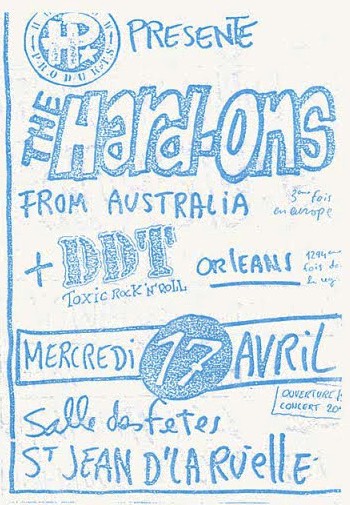 PRODUKTS
PRESENTE
THE Hard-Ons
FROM AUSTRALIA
3ème fois
en europe
+ DDT
TOXIC ROCK'N'ROLL
ORLEANS
fois d
MERCREDI 17 AVRIL
OUVERTURE
CONCERT 20
Salle des Fêtes
ST JEAN D'LA RUELLE